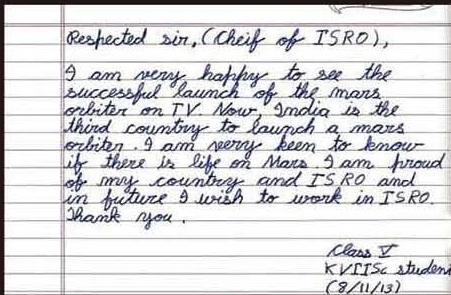 Respected sir, (Cheif of ISRO),
I am very happy to see the
successful launch of the mars
orbiter on TV. Now, India is the
third country to launch a mars
orbiter. I am very keen to know
if there is life on Mars. I am proud
of my country and ISRO and
in future I wish to work in ISRO.
Thank you.
Class V
KVIISc studen
(8/11/13)